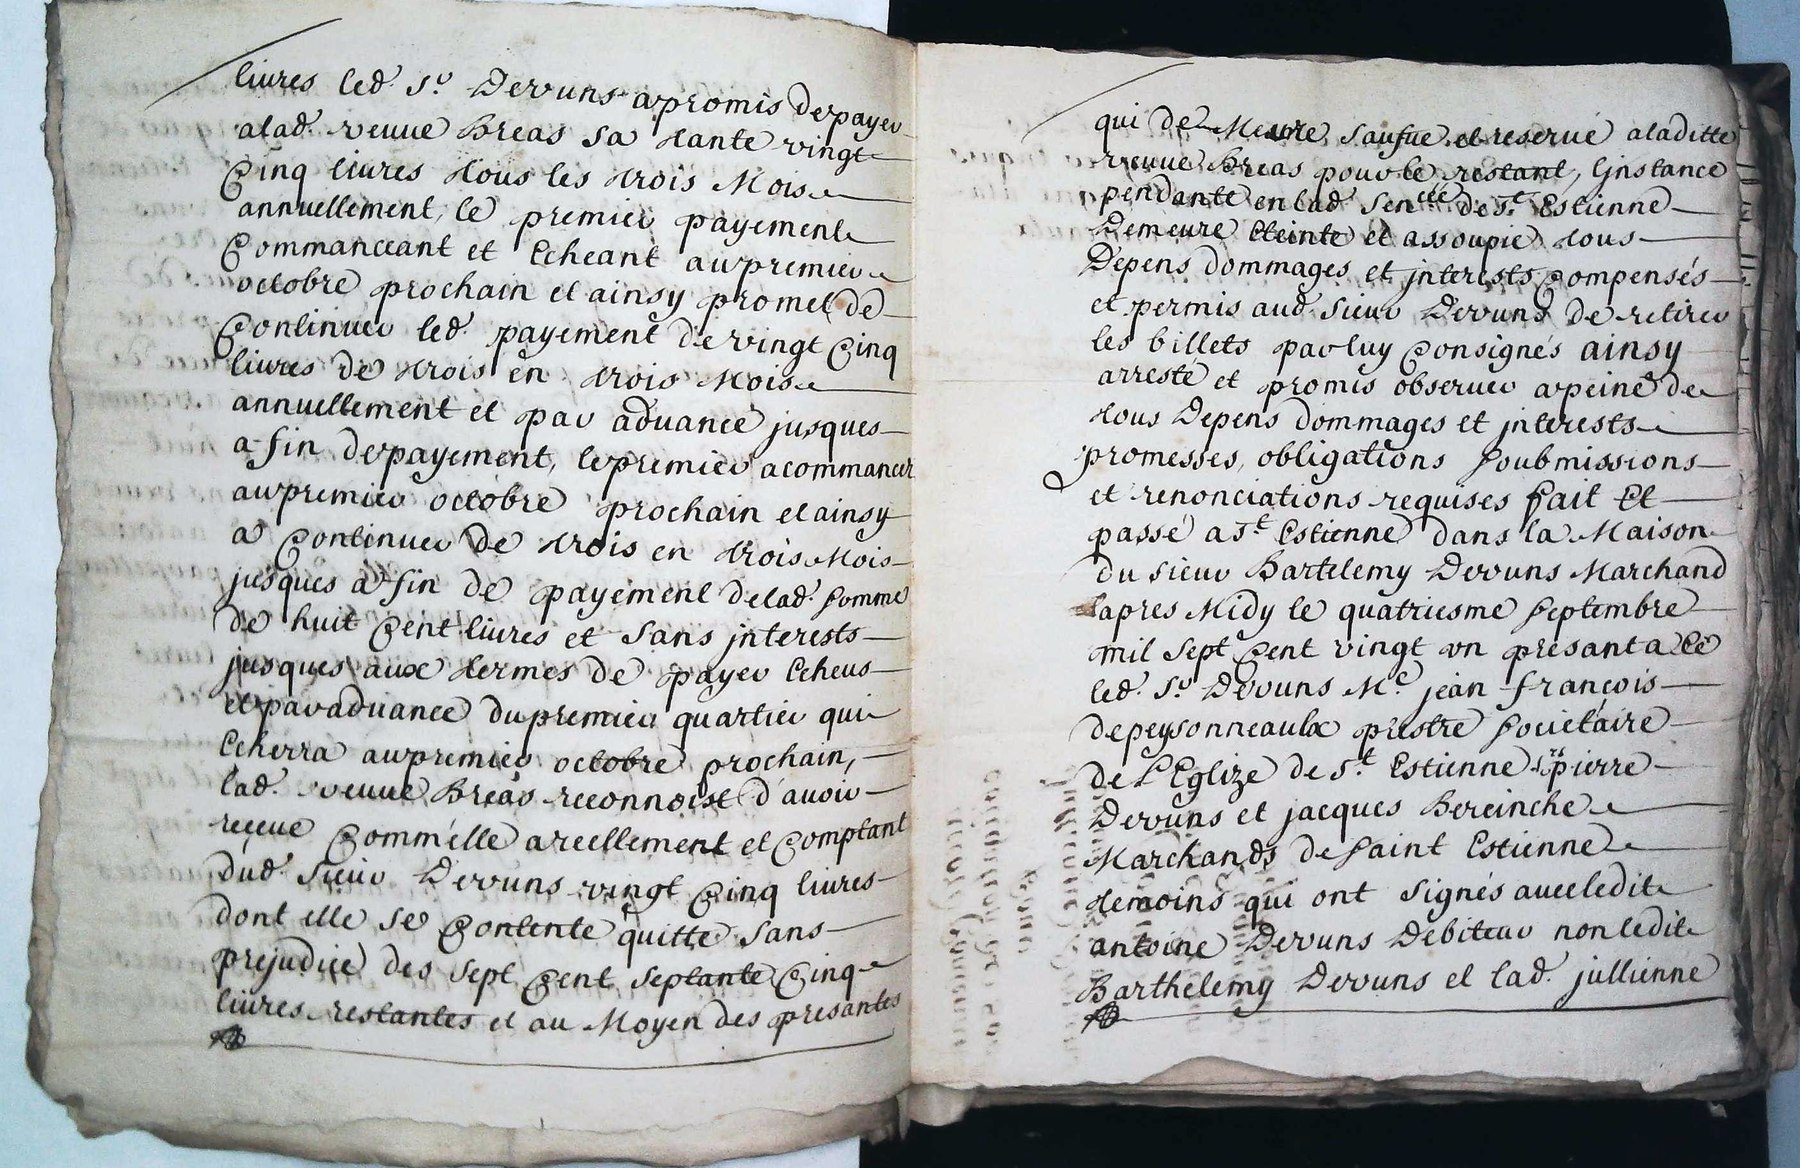 livres led. Sr. Dervuns a promis de payer
a lad. veuve Breas sa tante vingt
Cinq livres tous les trois Mois
annuellement, le premier payement
Commanceant et Echeant au premier
octobre prochain et ainsy promet de
Continuer led. payement de vingt Cinq
livres de trois en trois Mois
annuellement et par advance jusques
a fin de payement, le premier a commancer
au premier octobre prochain et ainsy
a Continuer de trois en trois Mois
jusques a fin de payement de lad. somme
de huit Cent livres et sans jnterests
jusques aux termes de payer Echeus
et par advance du premier quartier qui
Echerra au premier octobre prochain,
lad. veuve Breas reconnoist d'avoir
reçeue Comm'elle a reellement et Comptant
dud. sieur Dervuns vingt Cinq livres
dont elle se Contente quitte sans
prejudice des sept Cent septante Cinq
livres restantes et au Moyen des presantes
qui de Meure saufve et reservé a laditte
veuve Breas pour le restant, l'jnstance
pendante en lad. Senlle. de St. Estienne
Demeure Eteinte et assoupie tous
Depens dommages et jnterests Compensés
et permis aud. sieur Dervuns de retirer
les billets par luy Consignés ainsy
arresté et promis observer a peine de
tous Depens dommages et jnterests
promesses, obligations soubmissions
et renonciations requises fait Et
passé a St. Estienne dans la Maison
du sieur Bartelemy Dervuns Marchand
apres Midy le quatriesme septembre
mil sept Cent vingt un presant a Ce
led. Sr. Dervuns Me. jean françois
depeysonneaulx prestre societaire
de L'Eglize de St. Estienne srs pierre
Dervuns et jacques Bereinche
Marchands de saint Estienne
temoins qui ont signés avec ledit
antoine Dervuns Debiteur non ledit
Barthelemy Dervuns et lad. jullienne